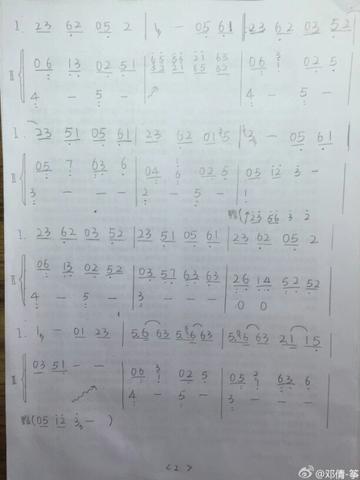 I. 23 62 05 2 | 1 - 05 61 | 23 62 03 52
II 06 13 02 51 | 65 56 21 63 | 06 3 02 5
4 - 5 - | 4 - 5 -
I. 23 51 05 61 | 23 62 01 5 | 1 - 05 61
II 05 7 63 6 | 04 6 02 5 | 05 12 3 -
3 - - - | 2 - 5 - | 1
I. 23 62 03 52 | 23 51 05 61 | 23 62 05 2
II 06 13 02 52 | 03 57 63 63 | 26 14 52 52
4 - 5 - | 3 - - - | 0 0
I. 1 - 01 23 | 56 63 56 63 | 56 63 21 15
II 03 51 - - | 06 3 02 5 | 05 2 63 6
4 - 5 - | 3 - - -
(05 12 3 - )
<2>
@邓倩-筝